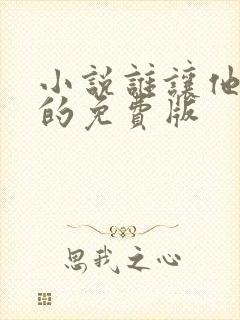 小説誰讓他
的免費版
思我之心